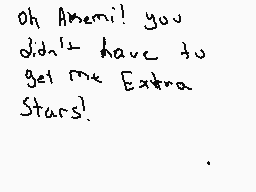 Oh Akemi! you
didn't have to
get me Extra
Stars!
.